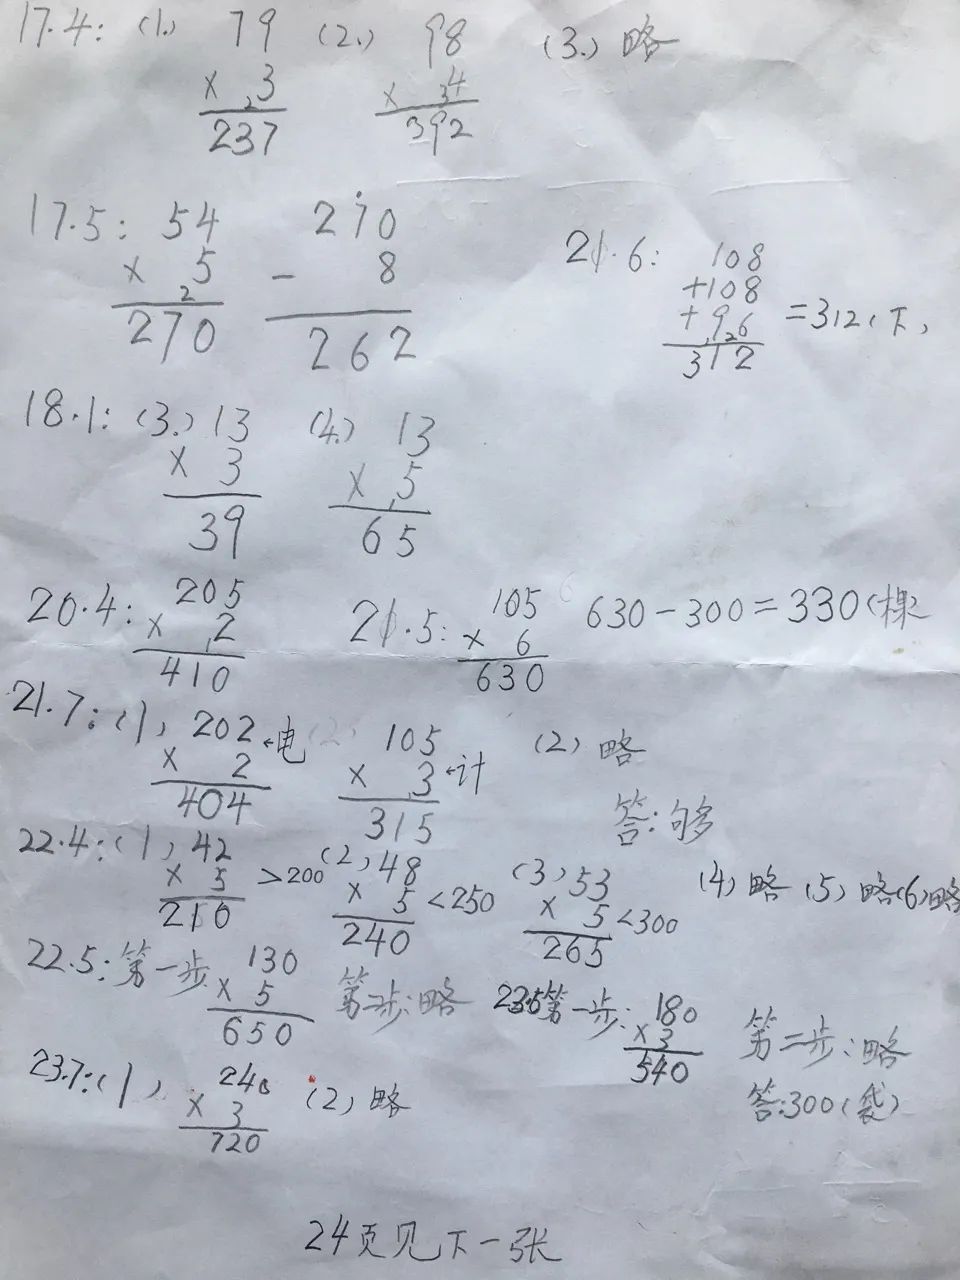 17.4: (1.) 79 (2.) 98 (3.) 略
× 3 × 4
2 3
237 392
17.5: 54 270
× 5 - 8
2
270 262
21.6: 108
+108
+96 =312(下)
12
312
18.1: (3.) 13 (4.) 13
× 3 × 5
1
39 65
20.4: 205 21.5: 105 630-300=330(棵
× 2 × 6
1
410 630
21.7: (1) 202 (2) 105 (2) 略
× 2 ←电 × 3 ←计
1
404 315 答:够
22.4: (1) 42 (2) 48 (3) 53 (4) 略 (5) 略 (6) 略
× 5 >200 × 5 <250 × 5 <300
210 240 265
22.5: 第一步 130 第二步: 略 23.5 第一步: 180 第二步: 略
× 5 × 3
650 540 答:300(袋)
23.7: (1) 240 (2) 略
× 3
720
24页见下一张